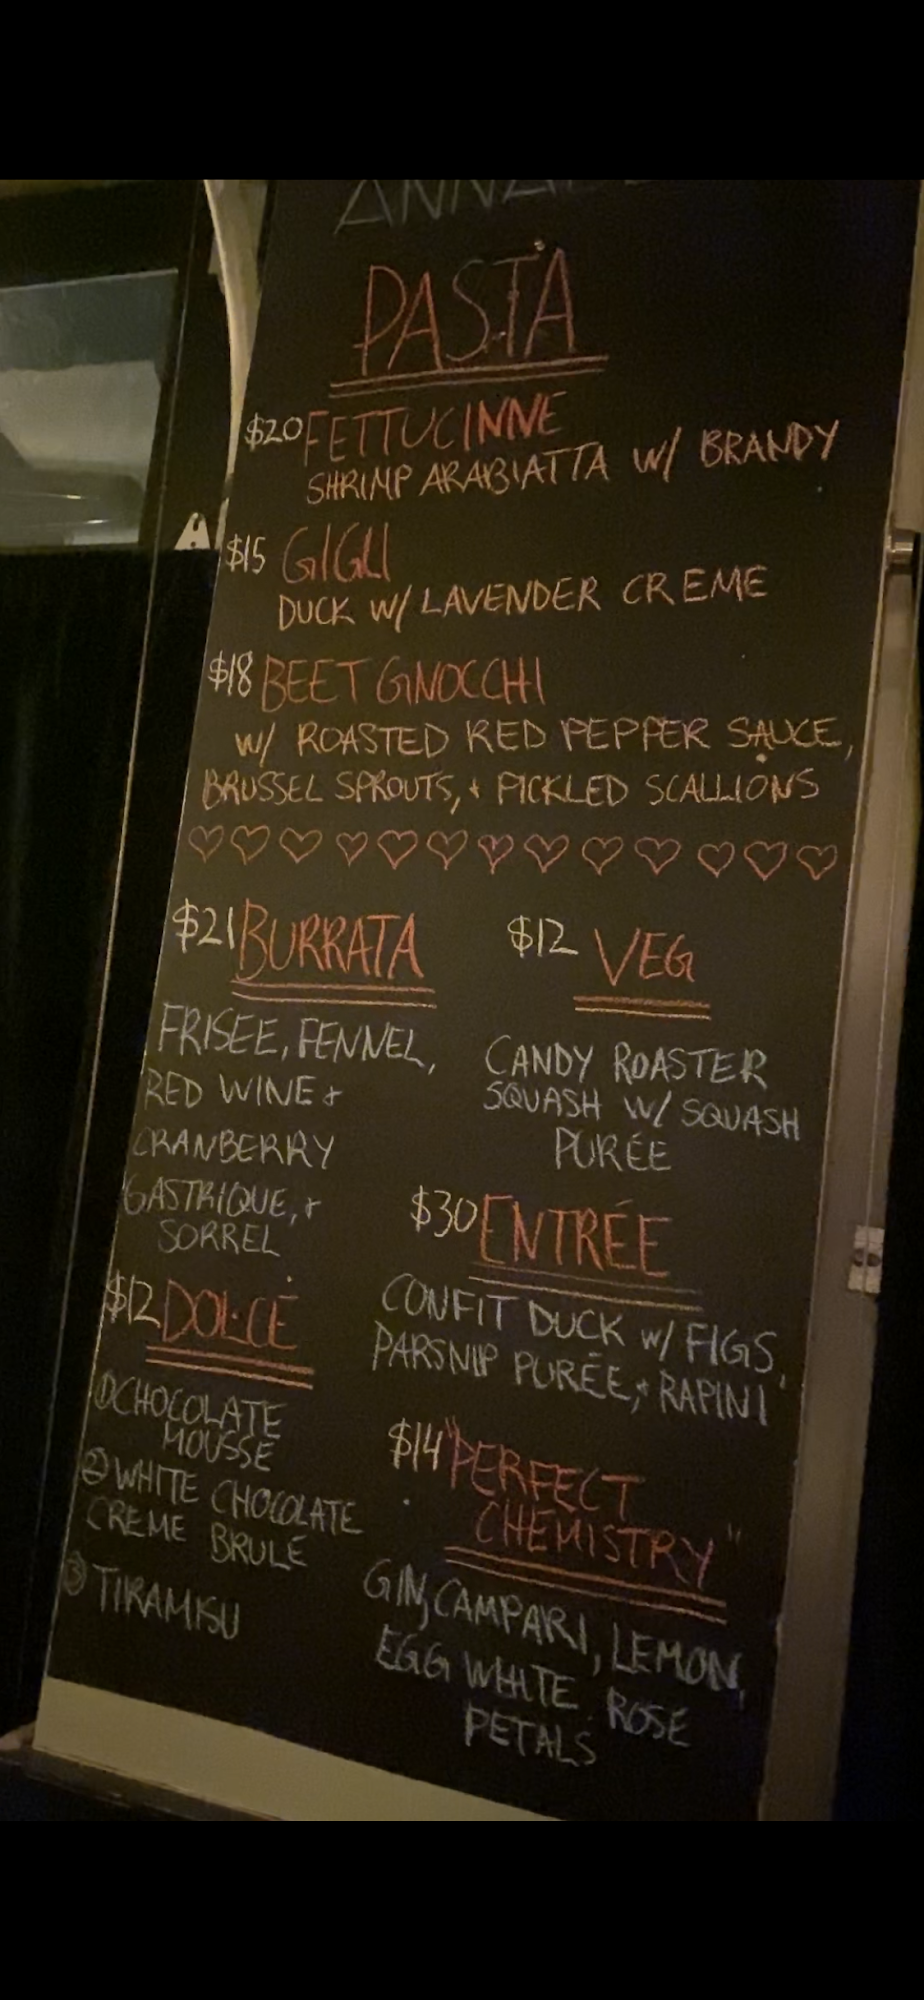 PASTA
$20 FETTUCINNE
SHRIMP ARABIATTA W/ BRANDY
$15 GIGLI
DUCK W/ LAVENDER CREME
$18 BEET GNOCCHI
W/ ROASTED RED PEPPER SAUCE,
BRUSSEL SPROUTS, + PICKLED SCALLIONS
$21 BURRATA
FRISEE, FENNEL,
RED WINE +
CRANBERRY
GASTRIQUE, +
SORREL
$12 DOLCE
① CHOCOLATE
MOUSSE
② WHITE CHOCOLATE
CREME BRULÉ
③ TIRAMISU
$12 VEG
CANDY ROASTER
SQUASH W/ SQUASH
PURÉE
$30 ENTRÉE
CONFIT DUCK W/ FIGS,
PARSNIP PURÉE, + RAPINI
$14 "PERFECT
CHEMISTRY"
GIN, CAMPARI, LEMON,
EGG WHITE, ROSE
PETALS